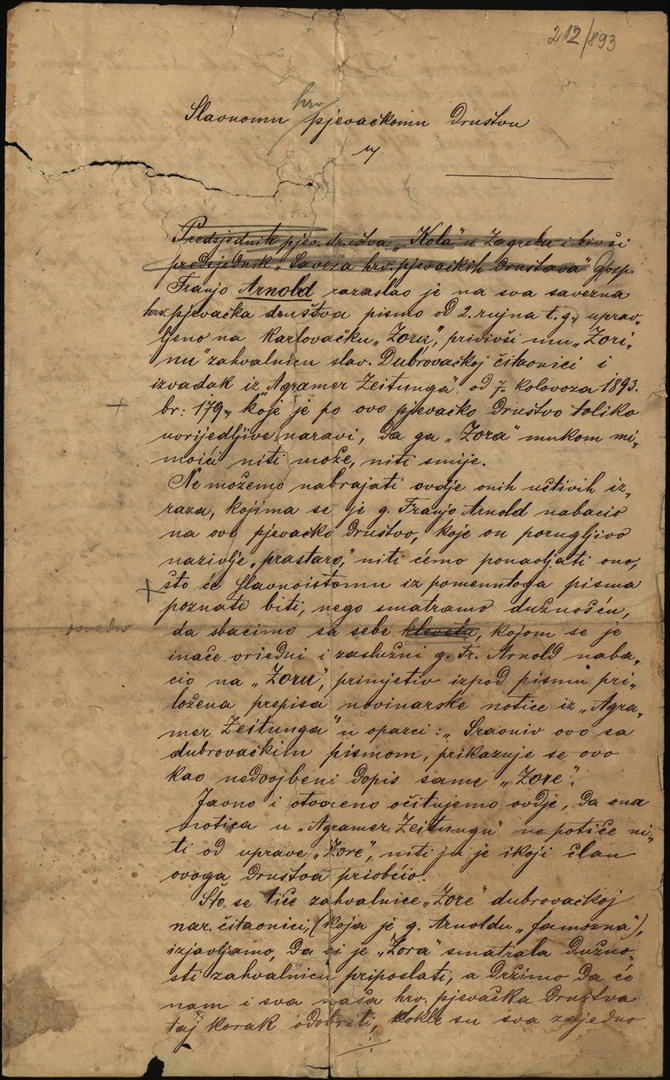 212/893
hrv.
Slavnomu pjevačkomu društvu
u
Predsjednik pjev. društva „Kola“ u Zagrebu i bivši
predsjednik „Saveza hrv. pjevačkih društava“ gosp.
Franjo Arnold razaslao je na sva savezna
hrv. pjevačka društva pismo od 2. rujna t.g. uprav-
ljeno na karlovačku „Zoru“, priviv̌ši mu „Zori-
nu“ zahvalnicu slav. Dubrovačkoj čitaonici i
izvadak iz „Agramer Zeitunga“ od 7. kolovoza 1893.
br: 179., koje je po ovo pjevačko društvo toliko
uvrijedljive naravi, da ga „Zora“ mukom mi-
moići niti može, niti smije.
Ne možemo nabrajati ovdje onih učtivih iz-
raza, kojima se je g. Franjo Arnold nabacio
na ovo pjevačko društvo, koje on porugljivo
nazivlje „prastaro“, niti ćemo ponavljati ono,
što će Slavnoistomu iz pomenutoga pisma
poznato biti, nego smatramo dužnošću,
da sbacimo sa sebe klevetu, kojom se je
inače vriedni i zaslužni g. Fr. Arnold naba-
cio na „Zoru“, primjetiv izpod pismu pri-
ložena prepisa novinarske notice iz „Agra-
mer Zeitunga“ u opazci: „Sravniv ovo sa
dubrovačkim pismom, prikazuje se ovo
kao nedvojbeni dopis same „Zore“.
Javno i otvoreno očitujemo ovdje, da ona
notica u „Agramer Zeitungu“ ne potiče ni-
ti od uprave „Zore“, niti ju je ikoji član
ovoga društva priobćio.
Što se tiče zahvalnice „Zore“ dubrovačkoj
nar. čitaonici, (koja je g. Arnoldu „famozna“),
izjavljamo, da ci je „Zora“ smatrala dužno-
sti zahvalnicu priposlati, a držimo da će
nam i sva naša hrv. pjevačka društva
taj korak odobriti, dokle su sva zajedno